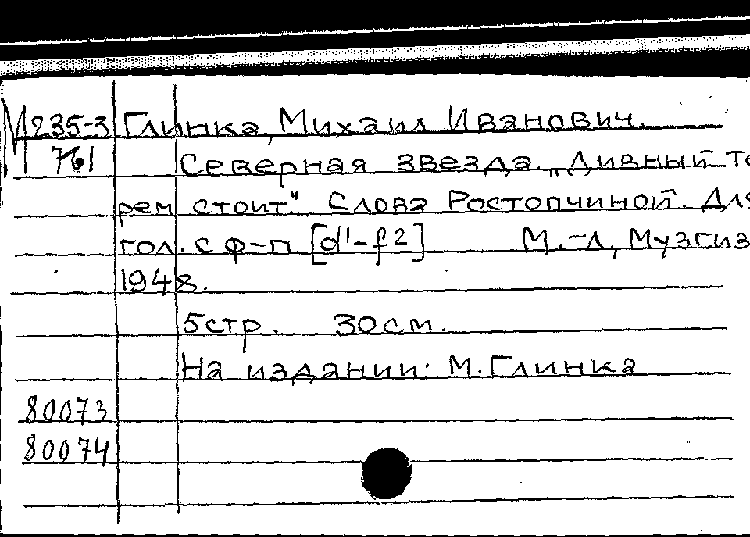 М235-3 Глинка, Михаил Иванович.
761 Северная звезда. „Дивный те
рем стоит" Слова Ростопчиной. Для
гол. с ф-п [d¹-f²] М.-Л, Музгиз
1948.
5стр. 30см.
На издании: М.Глинка
80073
80074